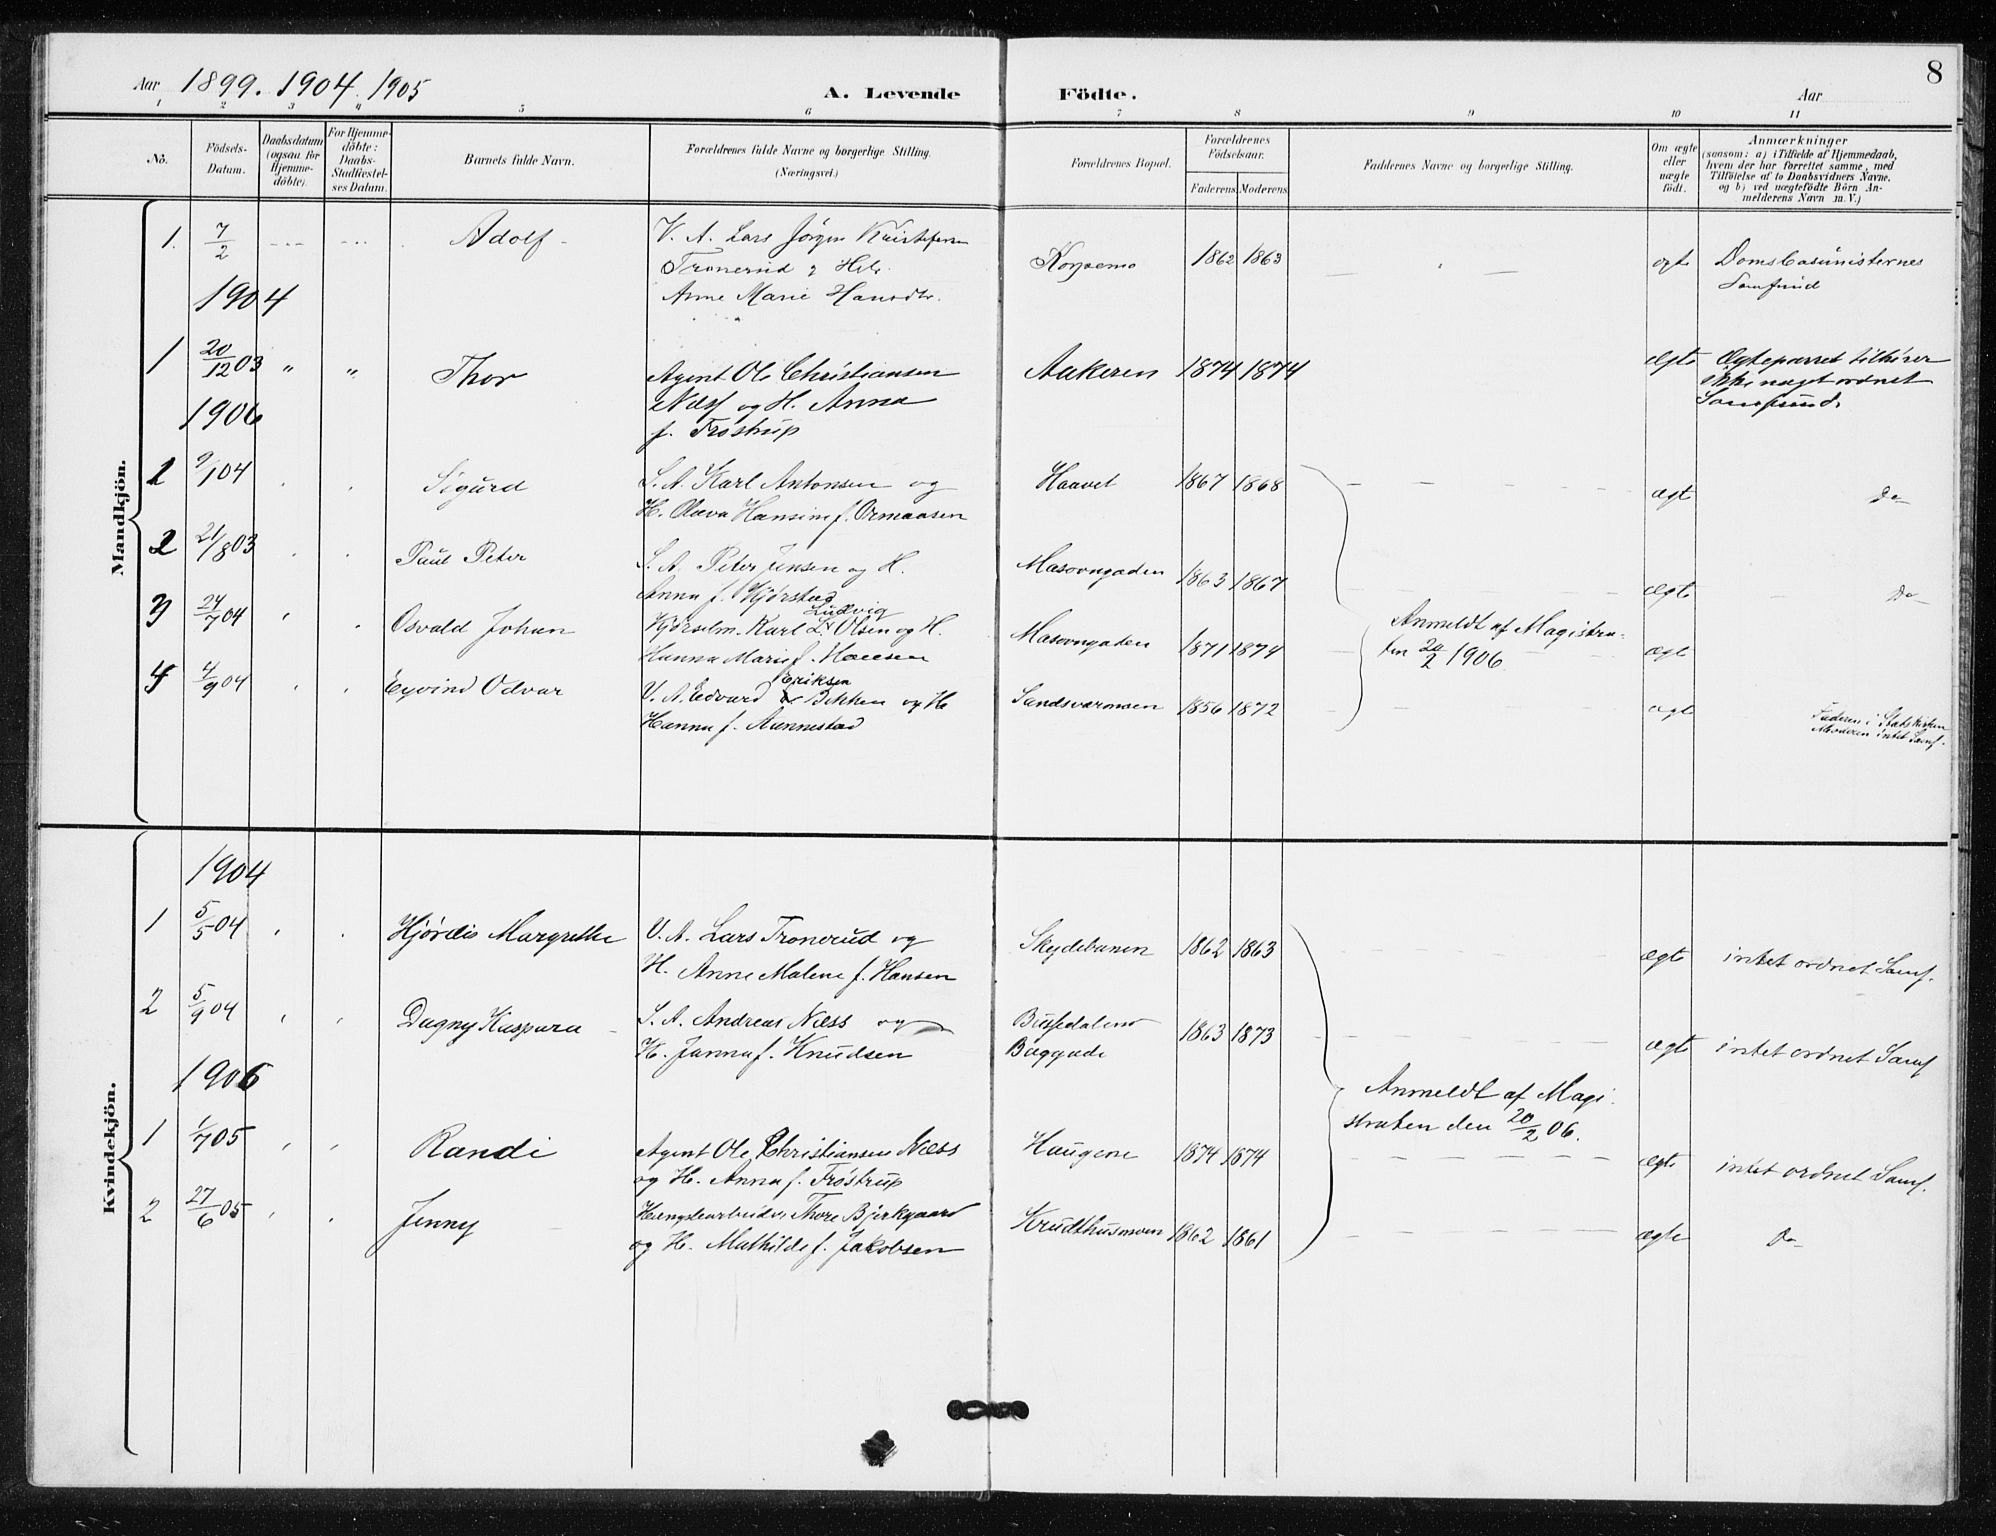 8
Aar 1899. 1904. 1905
A. Levende Födte.
Aar
1 2 3 4 5 6 7 8 9 10 11
No.
Födsels-
Datum.
Daabsdatum
(ogsaa for
Hjemme-
döbte).
For Hjemme-
döbte:
Daabs-
Stadfæstel-
ses Datum.
Barnets fulde Navn.
Forældrenes fulde Navne og borgerlige Stilling.
(Næringsvei.)
Forældrenes Bopæl.
Forældrenes
Födselsaar.
Faderens Moderens
Faddernes Navne og borgerlige Stilling.
Om ægte
eller
uægte
födt.
Anmærkninger
(saasom: a) i Tilfælde af Hjemmedaab,
hvem der har forrettet samme, med
Tilföielse af to Daabsvidners Navne.
og b) ved uægtefödte Börn An-
melderens Navn m. V.)
Mandkjön.
1. 7/2 Adolf V. A. Lars Jörgen
Tronerud & Hst. 1862 1863 ægte
Anne Marie Hansdtr.
Samfund
1904
1 20/12 03 " " Thor Agent Ole Christiansen Aakeren 1874 1874 ægte Ægteparret tilhører
Næss og H. Anna ikke noget ordnet
f. Trøstrup Samfund.
1906
1 9/1 04 Sigurd S. A. Karl Antonsen og Haavet 1867 1868 ægte Do
H. Olava Hansine f. Ormaasen
2 21/8 03 Paul Peter S. A. Peter Jensen og H. Masovngaden 1863 1867 ægte Do
Anna f. Kjørstad
3 24/7 04 Osvald Johan Kjørselm. Karl Ludvig Olsen og H. Masovngaden 1871 1874 ægte
Hanna Marie f. Hansen
Anmeldt af Magistra-
ten 20/2 1906
4 4/9 04 Eyvind Odvar V. A. Edvard Eriksen Bekken og H. Sandsværmoen 1856 1872 ægte
Hanna f. Aannestad
Faderen i Statskirken
Moderen intet Samf.
Kvindekjön.
1904
1 5/5 04 Hjørdis Margrethe V. A. Lars Tronerud og Skydebanen 1862 1863 ægte intet ordnet Samf.
H. Anne Malene f. Hansen
2 5/9 04 Dagny Kaspara S. A. Andreas Næss og 1863 1873 ægte intet ordnet Samf
H. Janna f. Knudsen Baggade
1906
Anmeldt af Magi-
straten den 20/2 06.
1 1/7 05 Randi Agent Ole Christiansen Næss Haugene 1874 1874 ægte intet ordnet Samf.
og H. Anna f. Trøstrup
2 27/6 05 Jenny Thore Bjerkgaard Krudthusmoen 1862 1861 ægte Do
og H. Mathilde f. Jakobsen